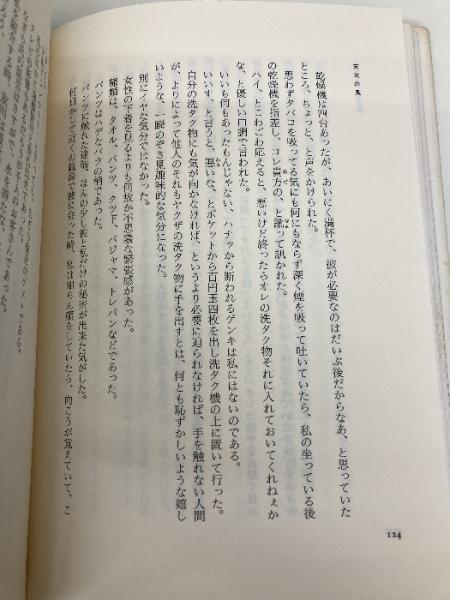 天穴の風
乾燥機は四台あったが、あいにく満杯で、彼が必要なのはだいぶ後だからなあ、と思っていた
ところ、ちょっと、と声をかけられた。
思わずタバコを吸ってる気にも何にもならず深く煙を吸って吐いていたら、私の坐っている後
の乾燥機を指差し、コレ貴方の、と訛って訊かれた。
ハイ、とこわごわ応えると、悪いけど終ったらオレの洗タク物それに入れておいてくれねぇか
な、と優しい口調で言われた。
いいも何もあったもんじゃない、ハナッから断われるゲンキは私にはないのである。
いいいす、と言うと、悪いな、とポケットから百円玉四枚を出し洗タク機の上に置いて行った。
自分の洗タク物にも気が向かなければ、というより必要に迫られなければ、手を触れない人間
が、よりによって他人のそれもヤクザの洗タク物に手を出すとは、何とも恥ずかしいような嬉し
いような、一瞬のぞき見趣味的な気分になった。
別にイヤな気分ではなかった。
女性の下着を見るよりも何故か不思議な緊張感があった。
種類は、タオル、パンツ、タク下、パジャマ、トレパンなどであった。
パンツはハデなバラの柄であった。
パンツに触れた途端、ほんの少し彼と私だけの秘密が出来た気がした。
何日かして近くの銭湯で彼に会った時、私は知らん顔をしていたら、向こうが覚えていて、こ
124